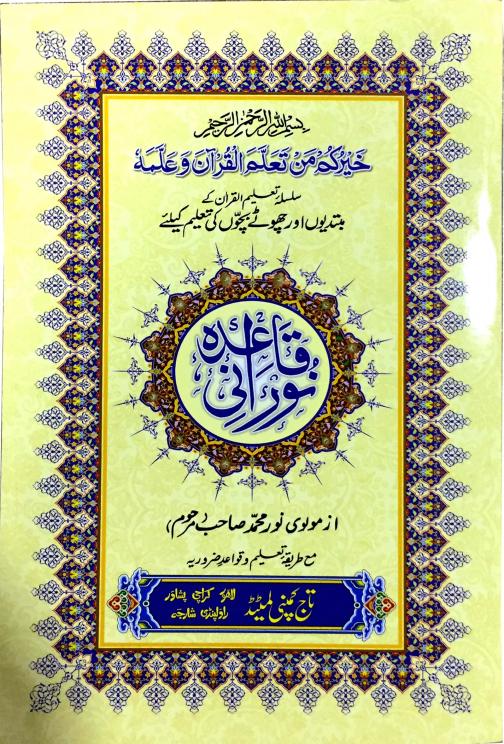 بِسْمِ اللهِ الرَّحْمٰنِ الرَّحِيْمِ
خَيْرُكُمْ مَنْ تَعَلَّمَ الْقُرْآنَ وَعَلَّمَهٗ
سلسلہ تعلیم القرآن کے
مبتدیوں اور چھوٹے بچّوں کی تعلیم کیلئے
نورانی قاعدہ
از مولوی نور محمّد صاحب (مرحوم)
مع طریقہ تعلیم و قواعدِ ضروریہ
تاج کمپنی لمیٹڈ لاہور کراچی پشاور
راولپنڈی شارجہ